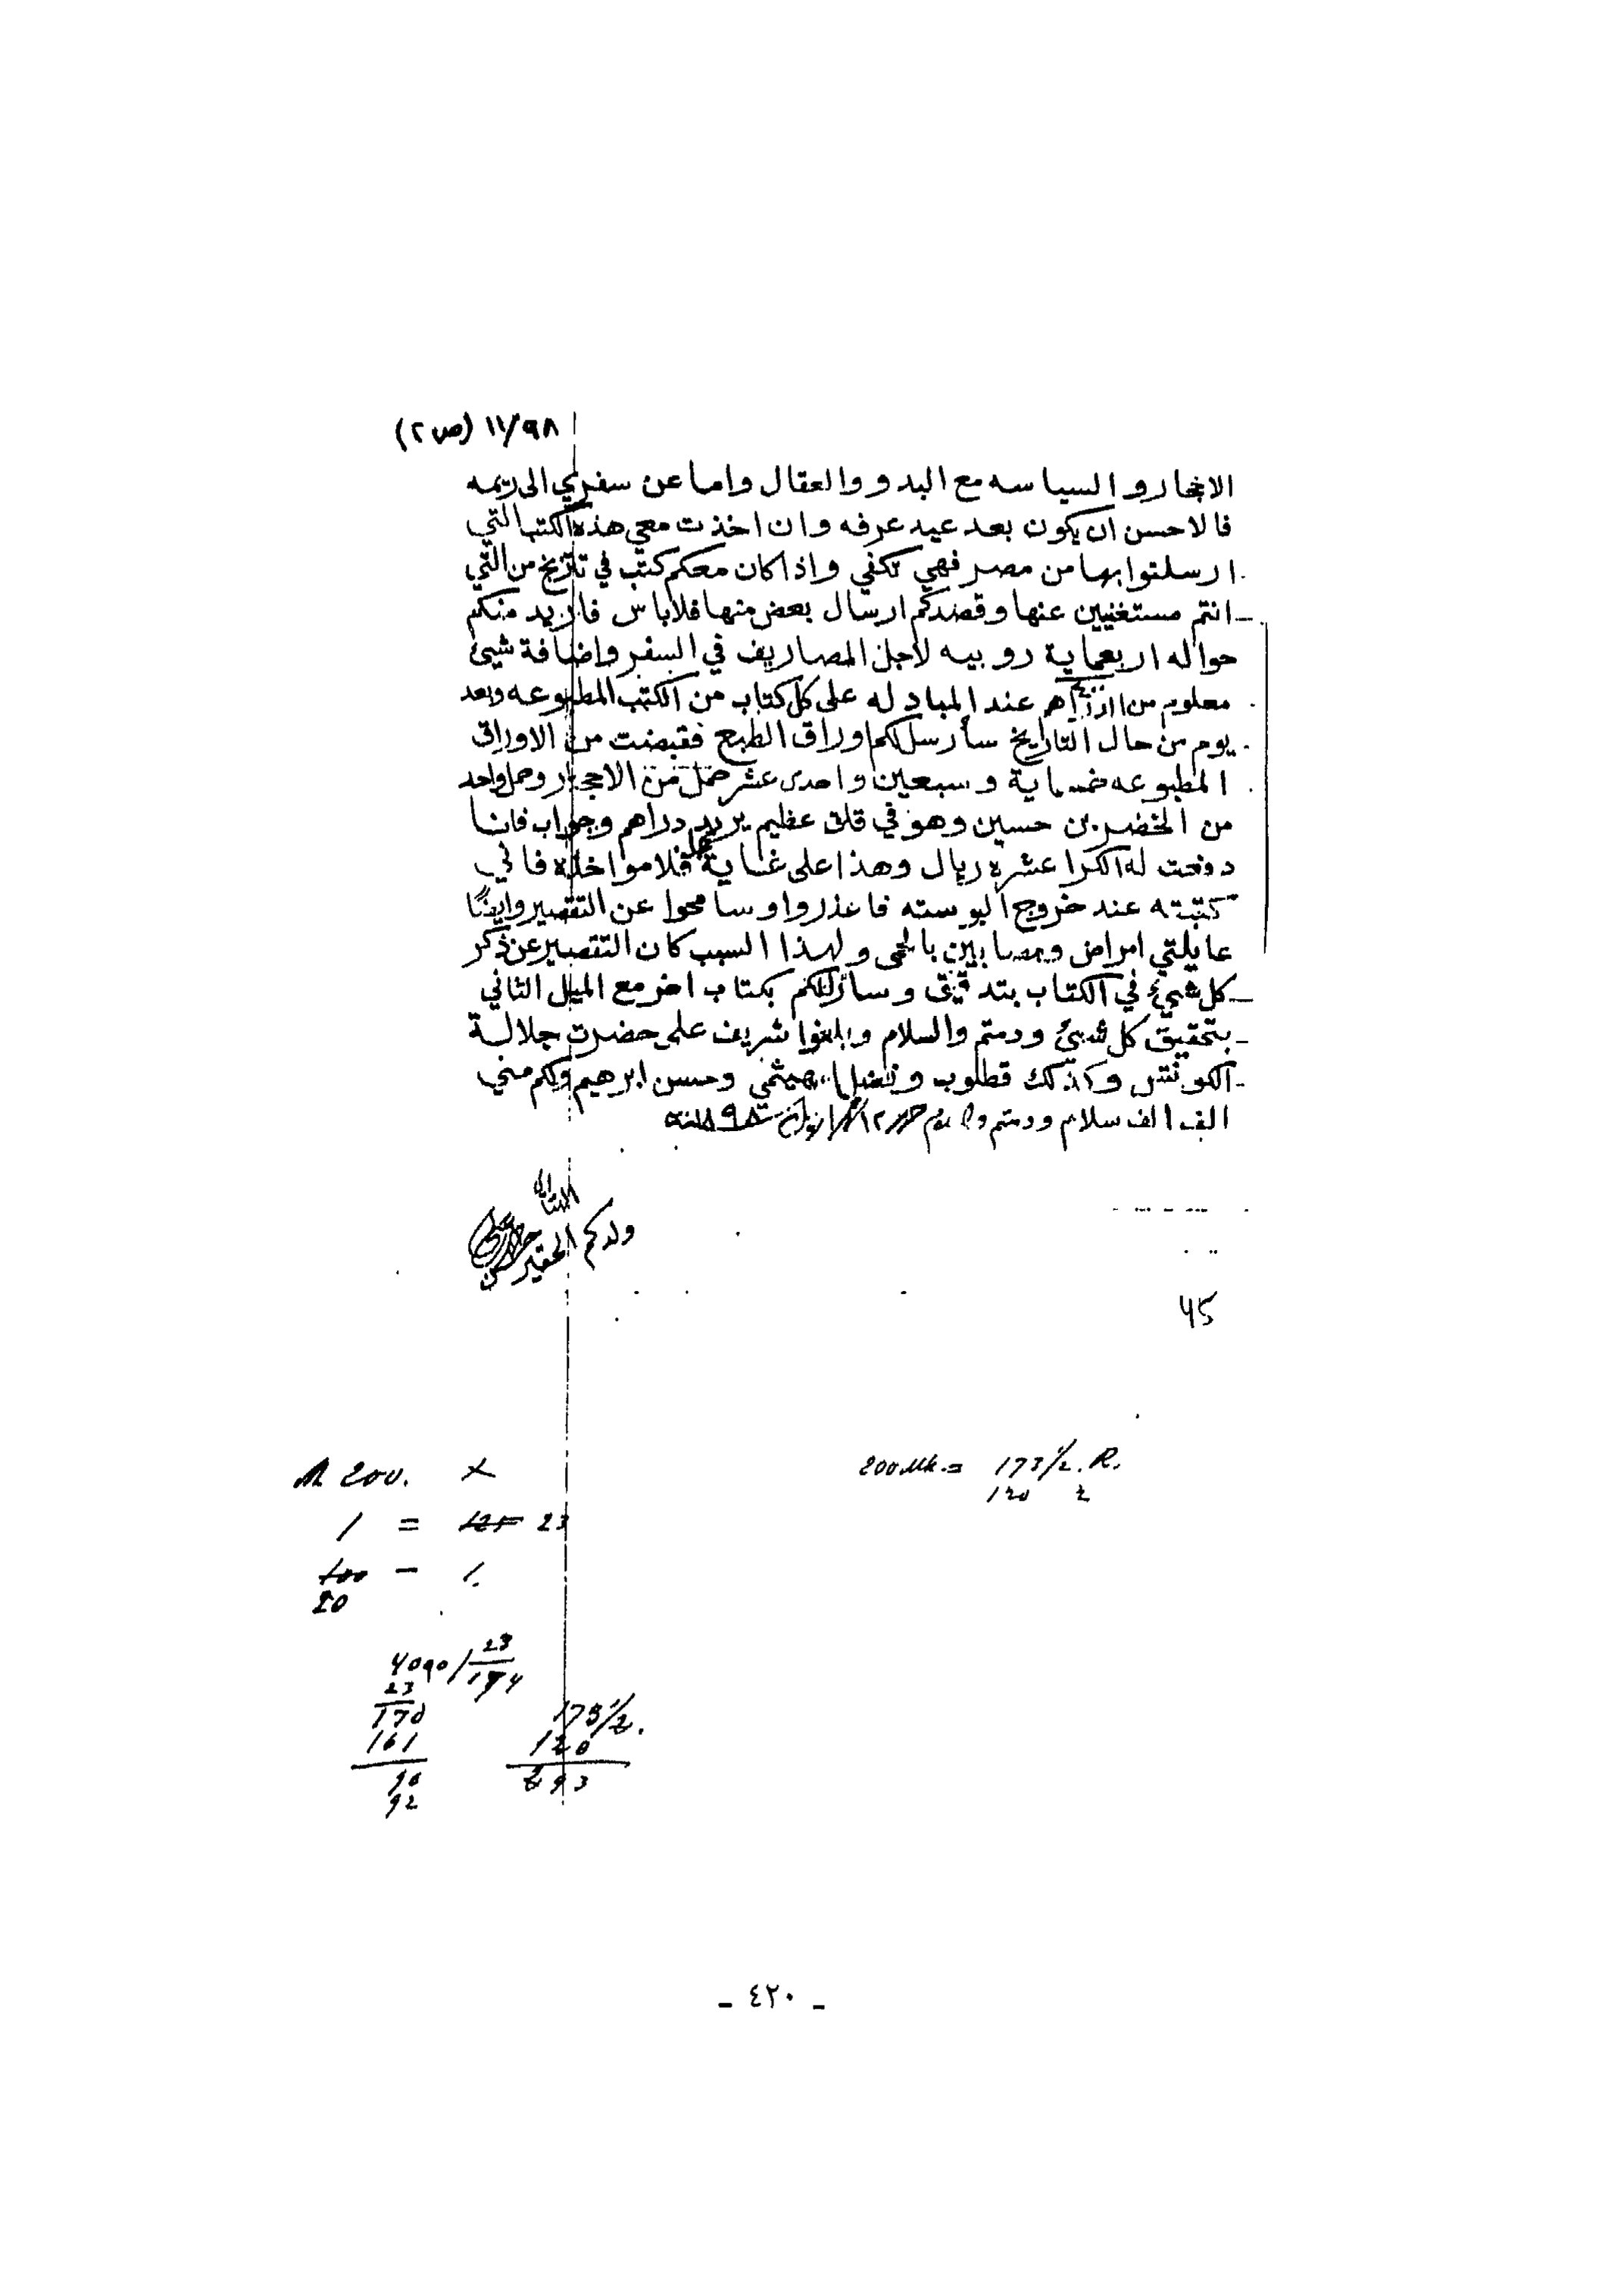 ١١/٩٨ (ص ٢)
والسياسه مع البدو والعقال واما عن سفري الى ريمه
فالاحسن ان يكون بعد عيد عرفه وان اخذت معي هذه الكتب التي
ارسلتوا بها من مصر فهي تكفي واذا كان معكم كتب في تاريخ من التي
انتم مستغنيين عنها وقصدكم ارسال بعض منها فلا باس فاريد منكم
حواله اربعماية روبيه لاجل المصاريف في السفر واضافة شيئ
معلوم من عند المبادله على كل كتاب من الكتب المطبوعه وبعد
يوم من حال التاريخ سأرسل لكم اوراق الطبع فقبضت من الاوراق
المطبوعه خمسماية وسبعين واحدى عشر حمل من الاحجار وحمل واحد
من الخضر بن حسين وهو في قلق عظيم يريد دراهم وجواب فانا
دفعت له الكرا عشره ريال وهذا على غاية فلا مواخذه فاني
كتبته عند خروج البوسته فاعذروا وسامحوا عن التقصير وايضًا
عايلتي امراض ومصابين بالحمى ولهذا السبب كان التقصير عن ذكر
كل شيئ في الكتاب بتدقيق وسأرسل لكم بكتاب اخر مع الميل الثاني
بتحقيق كل شيئ ودمتم والسلام وابلغوا شريف على حضرت جلالة
الكونتس وكذلك قطلوب وفضل هيثمي وحسن ابرهيم ولكم مني
الف الف سلام ودمتم ١٨٩٨ سنه
ولدكم الحقير
45
200 Mk. = 173 1/2. R.
120 2
M 200. x
1 = 121 23
100 - 1.
20
4090 / 23
174
23
170
161
90
92
173 1/2.
120
293
- ٤٢٠ -